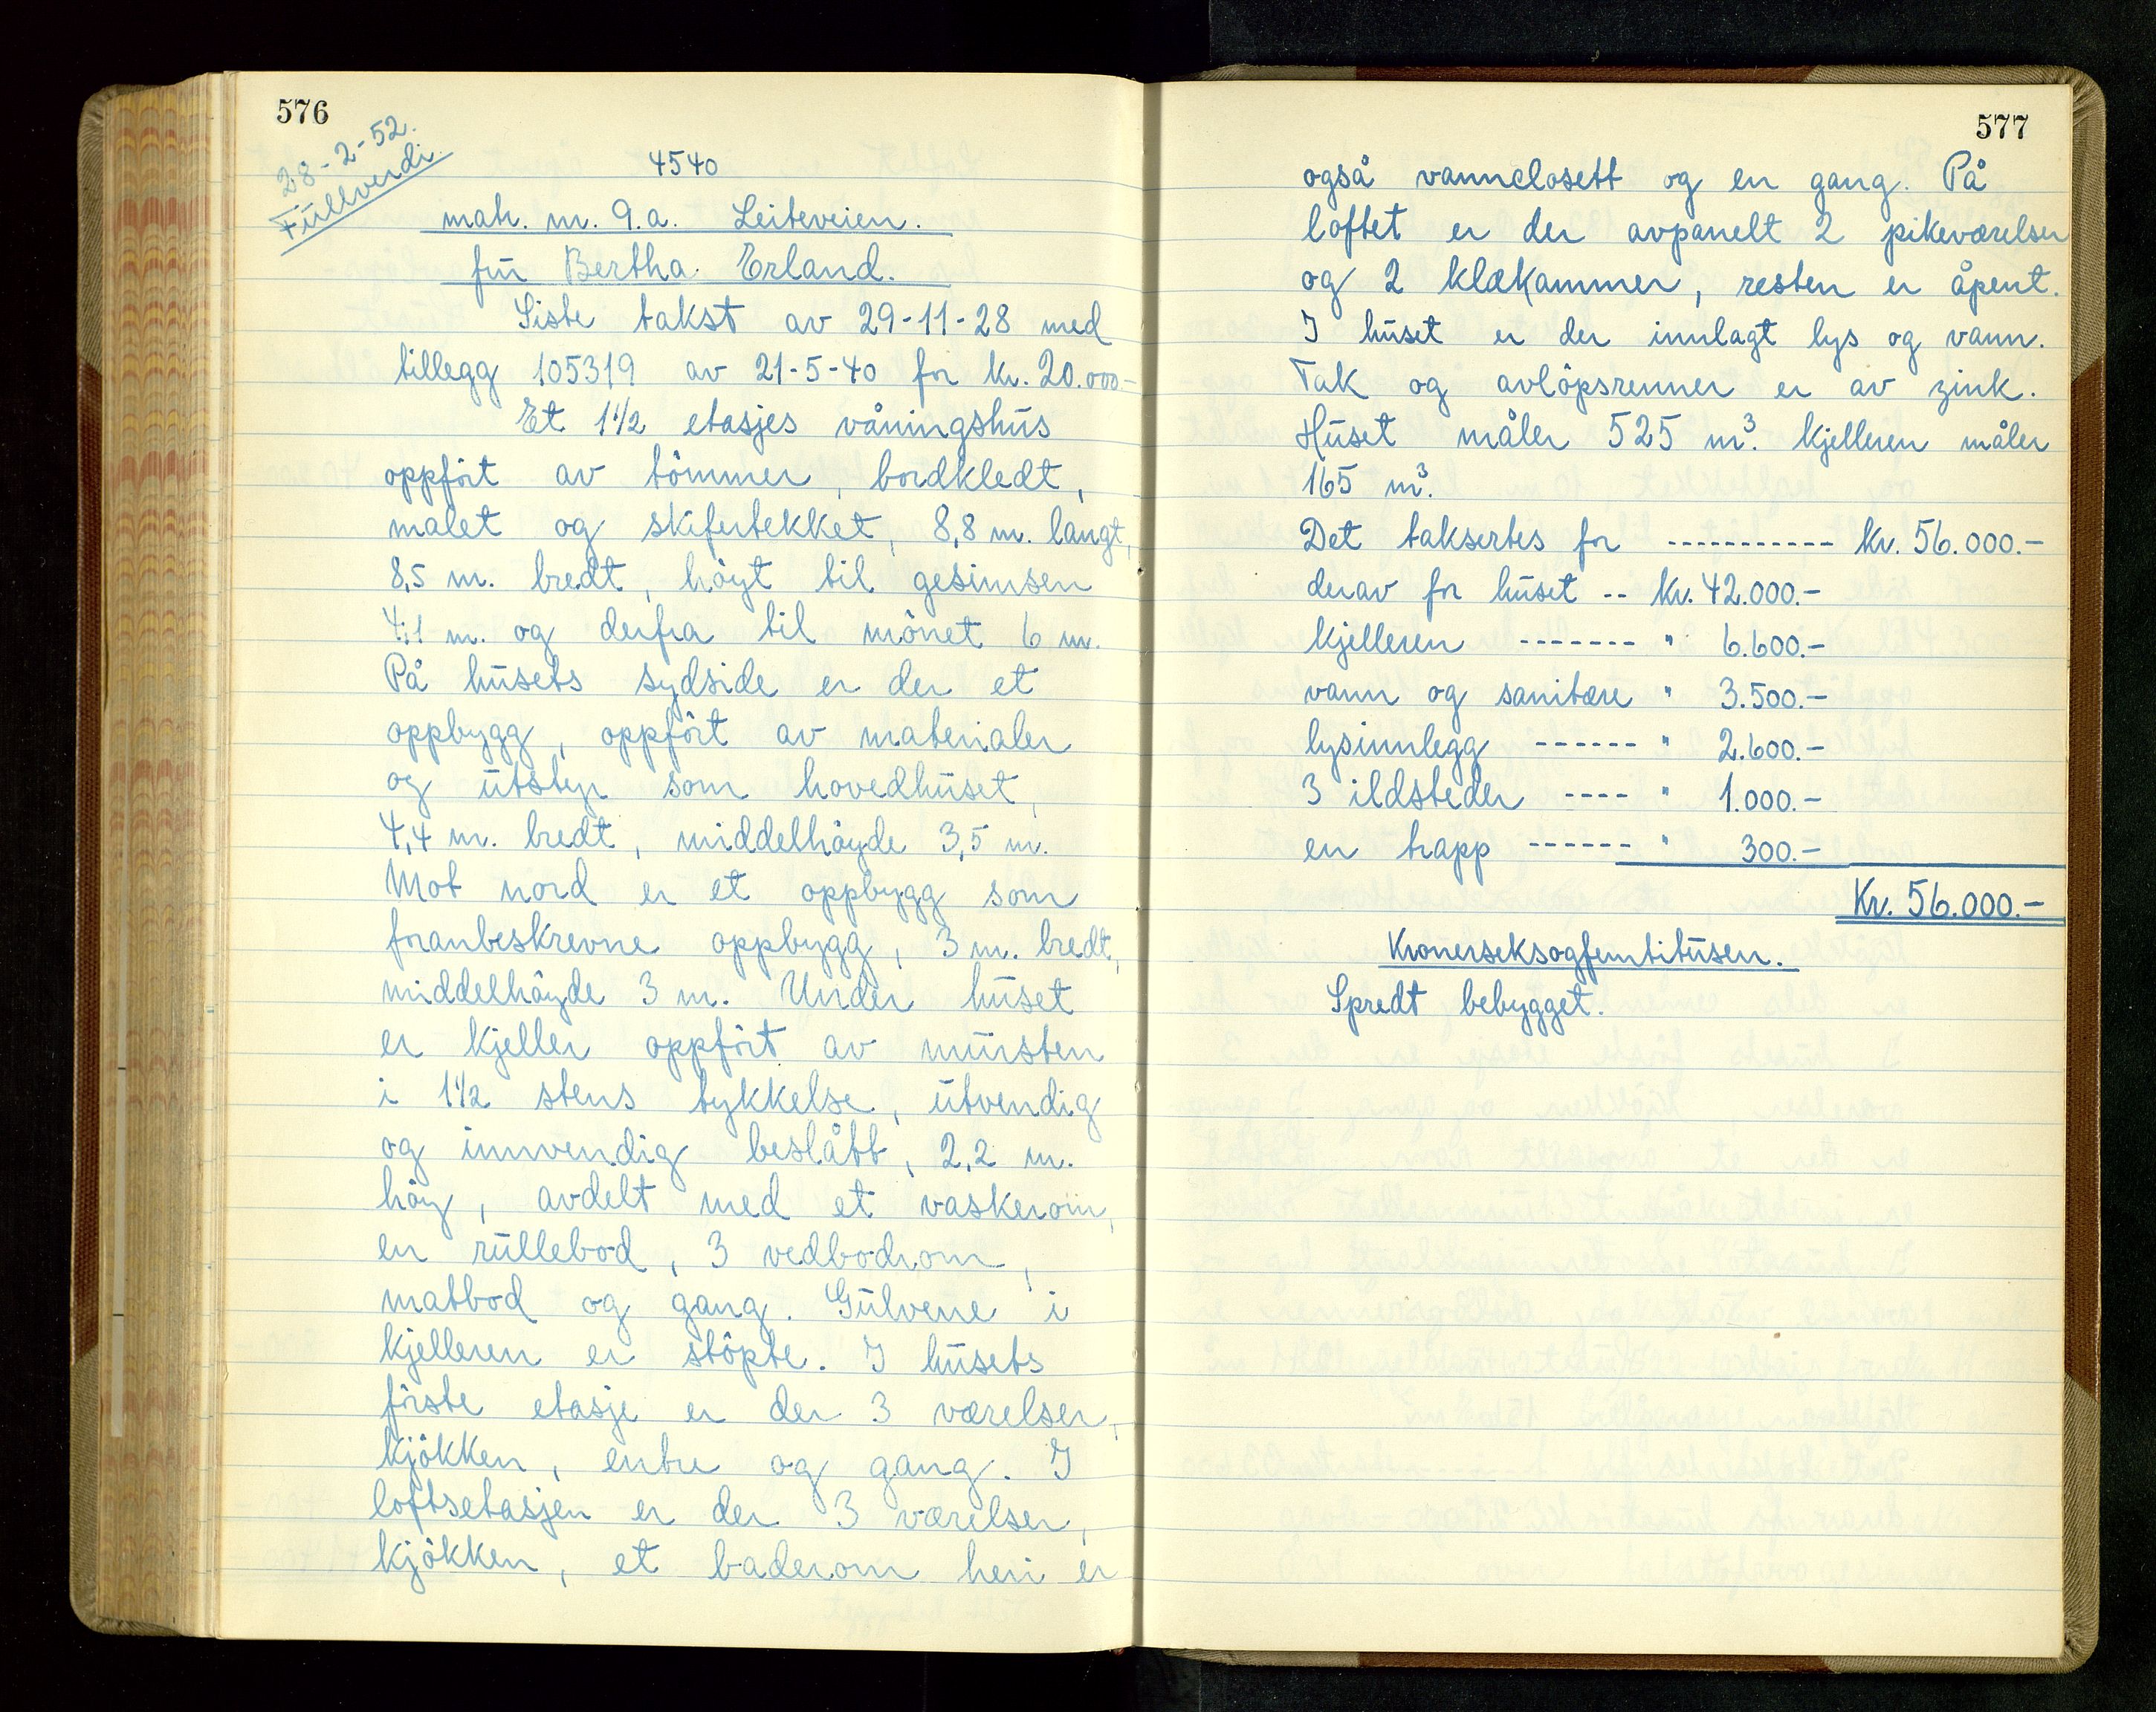 576
28-2-52.
Fullverdi
4540
matr. nr. 9.a. Leiteveien.
fru Bertha Erland.
Siste takst av 29-11-28 med
tillegg 105319 av 21-5-40 for kr. 20.000.-
Et 1 1/2 etasjes våningshus
oppført av tømmer, bordkledt,
malet og skifertekket, 8,8 m. langt,
8,5 m. bredt, høyt til gesimsen
4,1 m. og derfra til mønet 6 m.
På husets sydside er der et
oppbygg, oppført av materialer
og utstyr som hovedhuset,
4,4 m. bredt, middelhøyde 3,5 m.
Mot nord er et oppbygg som
foranbeskrevne oppbygg, 3 m. bredt,
middelhøyde 3 m. Under huset
er kjeller oppført av mursten
i 1 1/2 stens tykkelse, utvendig
og innvendig beslått, 2,2 m.
høy, avdelt med et vaskerom,
en rullebod, 3 vedbodrom,
matbod og gang. Gulvene i
kjelleren er støpte. I husets
første etasje er der 3 værelser,
kjøkken, entre og gang. I
loftsetasjen er der 3 værelser,
kjøkken, et baderom heri er
577
også vannclosett og en gang. På
loftet er der avpanelt 2 pikeværelser
og 2 klækammer, resten er åpent.
I huset er der innlagt lys og vann.
Tak og avløpsrenner er av zink.
Huset måler 525 m³. kjelleren måler
165 m³.
Det taksertes for ----------- kr. 56.000.-
derav for huset -- kr. 42.000.-
kjelleren ------- " 6.600.-
vann og sanitære " 3.500.-
lysinnlegg ------ " 2.600.-
3 ildsteder ---- " 1.000.-
en trapp ------ " 300.-
Kr. 56.000.-
Kronerseksogfemtitusen.
Spredt bebygget.